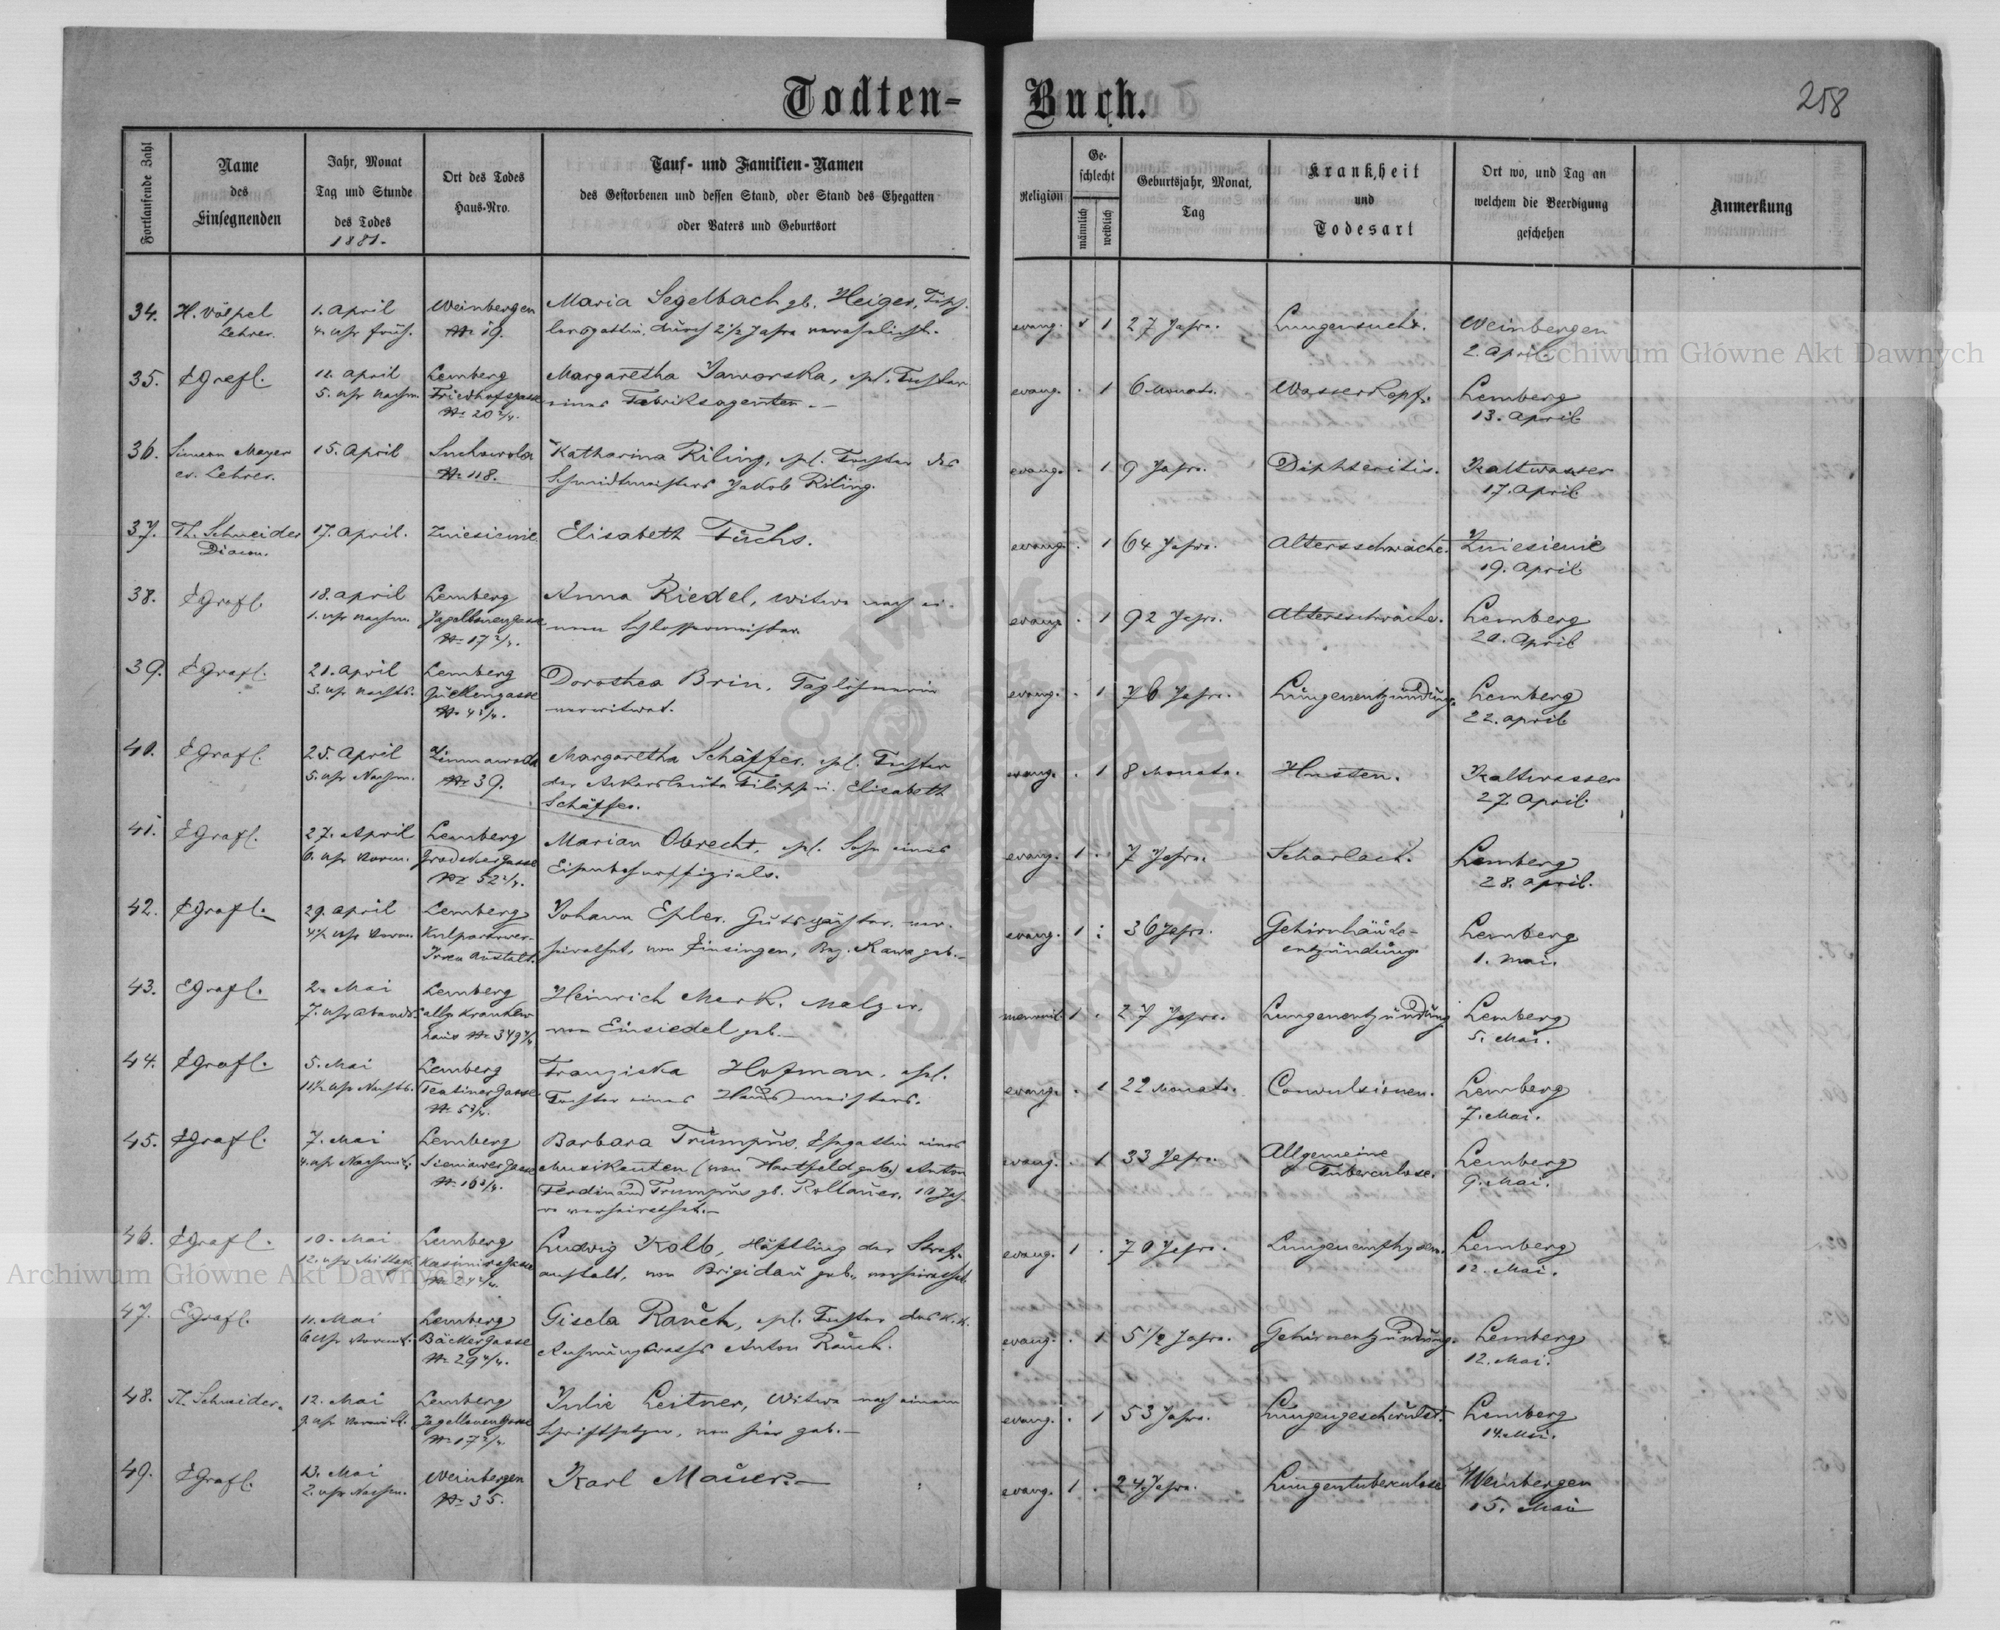 Todten-Buch.
258
Fortlaufende Zahl
Name
des
Einsegnenden
Jahr, Monat
Tag und Stunde
des Todes
1881.
Ort des Todes
Haus-Nro.
Tauf- und Familien-Namen
des Gestorbenen und dessen Stand, oder Stand des Ehegatten
oder Vaters und Geburtsort
Religion
Ge-
schlecht
männlich
weiblich
Geburtsjahr, Monat,
Tag
Krankheit
und
Todesart
Ort wo, und Tag an
welchem die Beerdigung
geschehen
Anmerkung
34. H. Völpel 1. April Weinbergen Maria Segelbach gb. Heiger,
Lehrer. 4. Uhr früh. No 19. durch 2 1/2 Jahre verehelicht.
evang. 1 27 Jahre. Lungensucht. Weinbergen
2. April
35. EGrafl. 11. April Lemberg Margaretha Jaworska, ehl. Tochter
5. Uhr Nachm. Friedhofgasse eines Fabriksagenten.
No 20 2/4.
evang. 1 6 Monate. Wasserkopf. Lemberg
13. April
36. Simeon Mayer 15. April Suchowola Katharina Riling, ehl. Tochter des
ev. Lehrer. No 118. Schmidtmeisters Jakob Riling.
evang. 1 9 Jahre. Diphteritis. Kaltwasser
17. April
37. Th. Schneider 17. April. Zniesienie Elisabeth Fuchs.
Diacon.
evang. 1 64 Jahre. Altersschwäche. Zniesienie
19. April
38. EGrafl. 18. April Lemberg Anna Riedel, Witwe nach ei-
1. Uhr Nachm. Jagellonengasse nem Schlossermeister.
No 17 2/4.
evang. 1 92 Jahre. Altersschwäche. Lemberg
20. April
39. EGrafl. 21. April Lemberg Dorothea Brin, Taglöhnerin
3. Uhr Nachts. No 4 verwitwet.
evang. 1 76 Jahre. Lungenentzündung. Lemberg
22. April
40. EGrafl. 25. April Zimnawoda Margaretha Schäffer, ehl. Tochter
5. Uhr Nachm. No 39. der Ackersleute Filipp u. Elisabeth
Schäffer.
evang. 1 8 Monate. Husten. Kaltwasser
27. April.
41. EGrafl. 27. April Lemberg Marian Obrecht, ehl. Sohn eines
6. Uhr Vorm. Grodekergasse Eisenbahnoffizials.
No 52 2/4.
evang. 1 7 Jahre. Scharlach. Lemberg
28. April.
42. EGrafl. 29. April Lemberg Johann Epler, Gutspächter, ver-
4 1/2 Uhr Vorm. Kulparkower- heirathet, von Einsingen, Bez. Rawa geb.
Irren Anstalt.
evang. 1 36 Jahre. Gehirnhäute- Lemberg
entzündung 1. Mai.
43. EGrafl. 2. Mai Lemberg Heinrich Merk, Malzer,
7. Uhr Abends. allg. Kranken- von Einsiedel geb.
haus No 349
mennonit. 1 27 Jahre. Lungenentzündung Lemberg
5. Mai.
44. EGrafl. 5. Mai Lemberg Franziska Hofman, ehl.
11 1/2 Uhr Nachts. Teatinergasse Tochter eines Hausmeisters.
No 5 3/4.
evang. 1 22 Monate. Convulsionen. Lemberg
7. Mai.
45. EGrafl. 7. Mai Lemberg Barbara Trumpus, Ehegattin eines
4. Uhr Nachmit. Sieniawergasse Musikanten (von Hartfeld geb.) Anton
No 16 Ferdinand Trumpus gb. Rollauer, 10 Jah-
re verheirathet.
evang. 1 33 Jahre. Allgemeine Lemberg
Tuberculose. 9. Mai.
46. EGrafl. 10. Mai Lemberg Ludwig Kolb, Häftling der Straf-
12. Uhr Mittags anstalt, von Brigidau geb., verheirathet.
evang. 1 70 Jahre. Lungenemphysem. Lemberg
12. Mai.
47. EGrafl. 11. Mai Lemberg Gisela Rauch, ehl. Tochter des k. k.
6 Uhr Vormit. Bäckergasse Rechnungsraths Anton Rauch.
No 29 4/4.
evang. 1 5 1/2 Jahre. Gehirnentzündung. Lemberg
12. Mai.
48. Th. Schneider. 12. Mai Lemberg Julie Leitner, Witwe nach einem
9. Uhr Vormit. Jagellonengasse Schriftsetzer, von hier geb.
No 17 2/4
evang. 1 53 Jahre. Lungengeschwulst. Lemberg
14. Mai.
49. EGrafl. 13. Mai Weinbergen Karl Mauer.
2. Uhr Nachm. No 35.
evang. 1 24 Jahre. Lungentuberculose Weinbergen
15. Mai
Archiwum Główne Akt Dawnych
Archiwum Główne Akt Dawnych